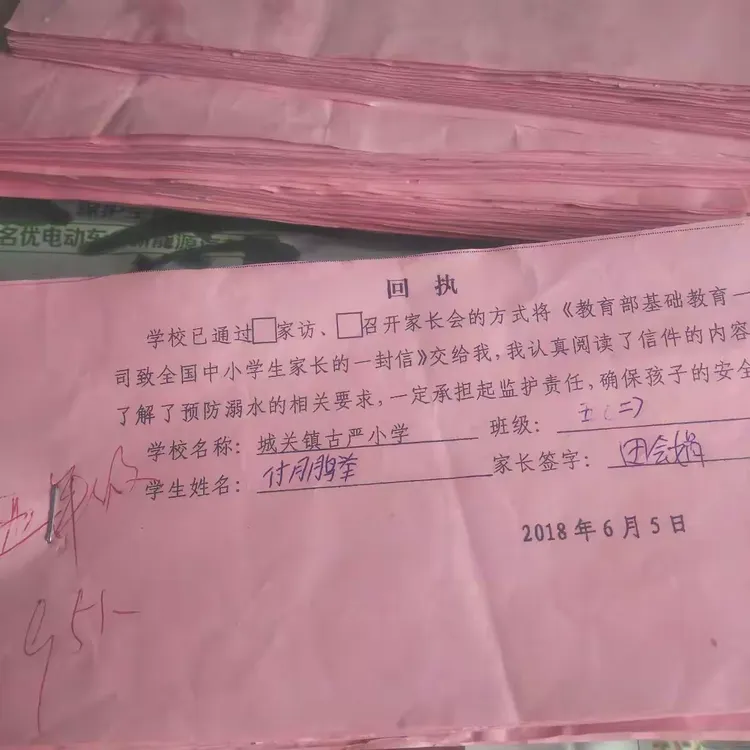 名优电动车 新能源
回 执
学校已通过□家访、□召开家长会的方式将《教育部基础教育一
司致全国中小学生家长的一封信》交给我,我认真阅读了信件的内容
了解了预防溺水的相关要求,一定承担起监护责任,确保孩子的安全
学校名称: 城关镇古严小学 班级: 五(二)
学生姓名: 付 举 家长签字: 田会娟
2018 年 6 月 5 日